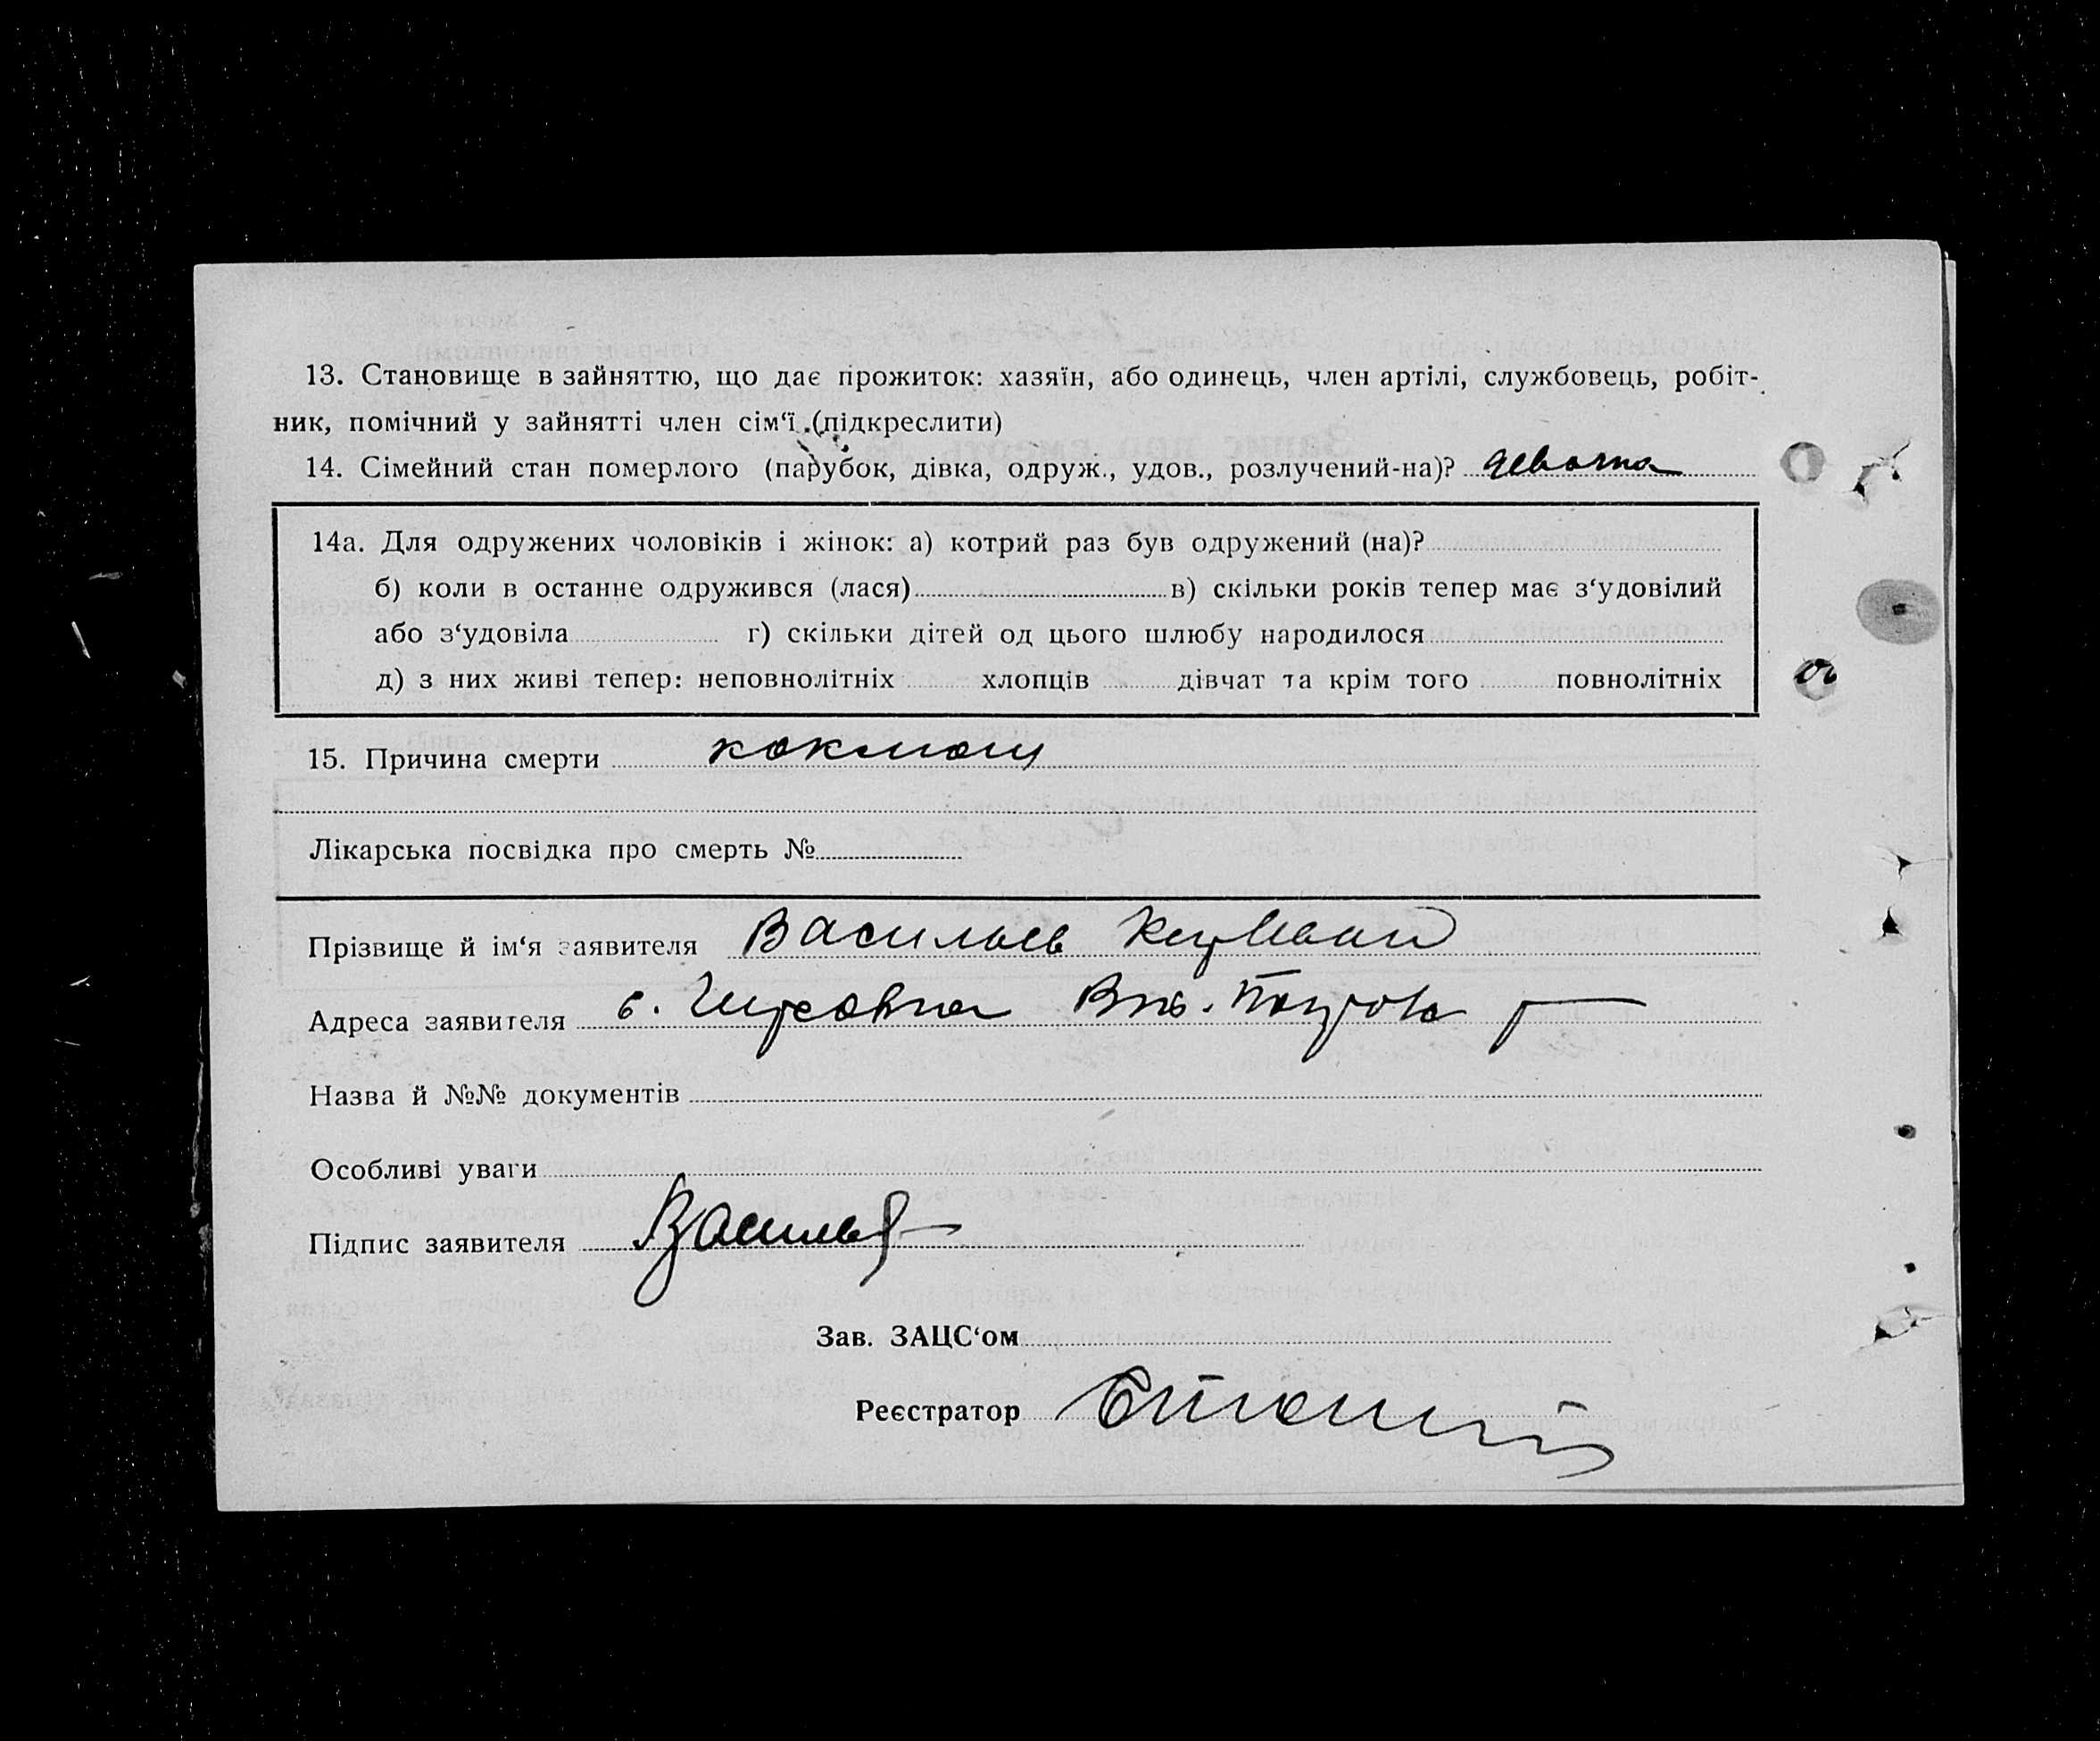 13. Становище в зайняттю, що дає прожиток: хазяїн, або одинець, член артілі, службовець, робіт-
ник, помічний у зайнятті член сім‘ї (підкреслити)
14. Сімейний стан померлого (парубок, дівка, одруж., удов., розлучений-на)?
14а. Для одружених чоловіків і жінок: а) котрий раз був одружений (на)?
б) коли в останнє одружився (лася) в) скільки років тепер має з‘удовілий
або з‘удовіла г) скільки дітей од цього шлюбу народилося
д) з них живі тепер: неповнолітніх хлопців дівчат та крім того повнолітніх
15. Причина смерти коклюш
Лікарська посвідка про смерть №
Прізвище й ім‘я заявителя Васильев
Адреса заявителя с.
Назва й №№ документів
Особливі уваги
Підпис заявителя Васильев
Зав. ЗАЦС‘ом
Реєстратор